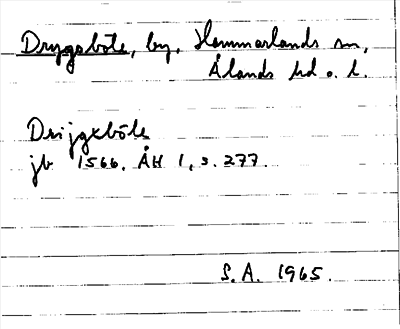 Drygsböte, by, Hammarlands sn,
Ålands hd o. l.
Drijgxböle
jb 1566. ÅH 1, s. 277.
S.A. 1965.